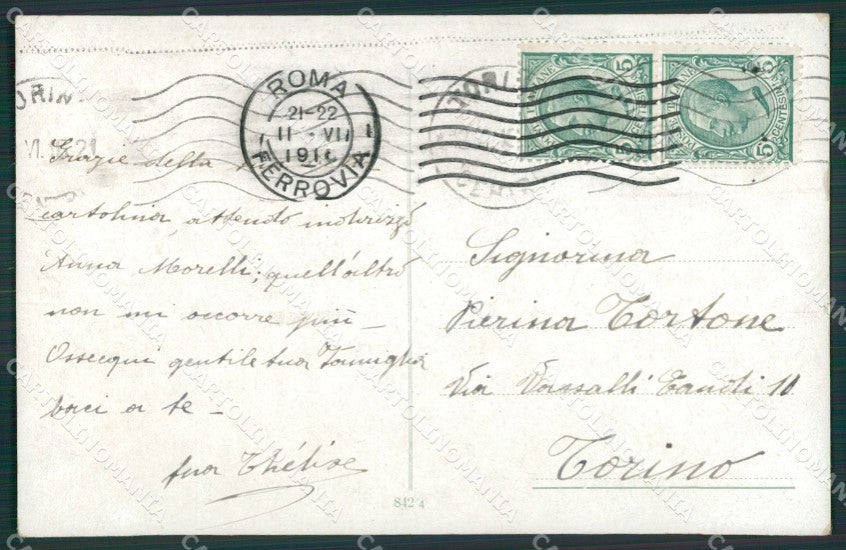 ROMA
21-22
11 - VII
191
FERROVIA
TORI
ORIN
5
5
5
5
POSTE
CENTES
Grazie della
cartolina, attendo indirizzo
Anna Morelli; quell'altro
non mi occorre più -
Ossequi gentile tua Famiglia
baci a te -
tua Thélise
Signorina
Pierina Tortone
Via Vassalli Eandi 11
Torino
842/4
CARTOLINOMANIA